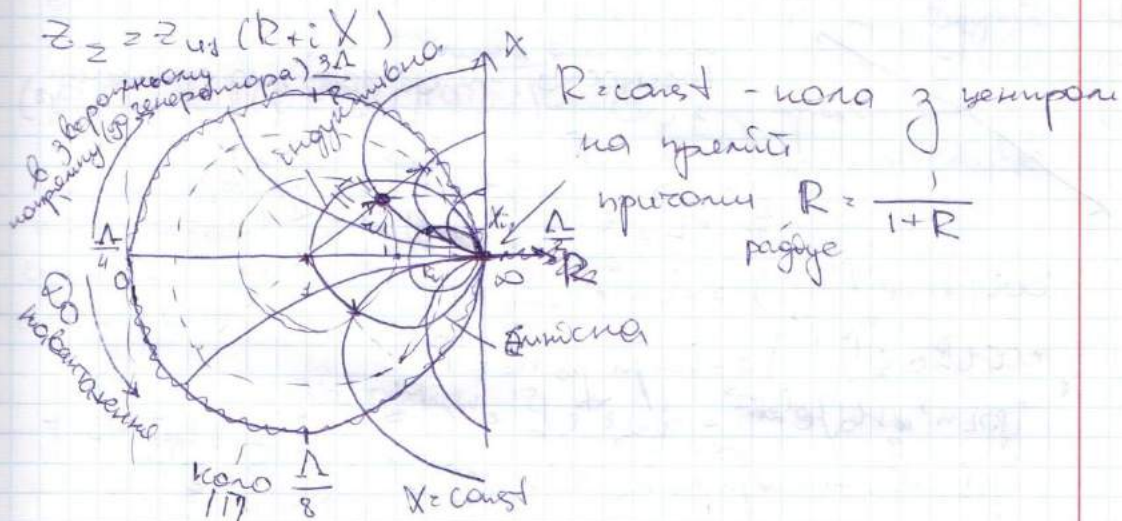 Z_Σ = Z_из (R+iX)
в зворотньому
напрямку (до генератора)
3Λ/8
індуктивна
X
R=const - кола з центром
на прямій
причому R = 1/(1+R)
радіус
Λ/4
0
∞
Λ/2
R
До
навантаження
Ємнісна
X=const
коло
Λ/8